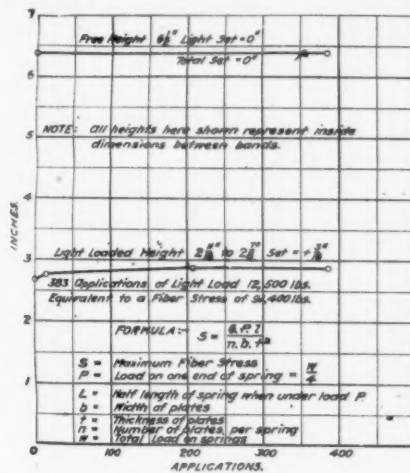 7
Free Height 6½" Light Set = 0"
Total Set = 0"
6
5
NOTE: All heights here shown represent inside
dimensions between bands.
4
INCHES.
3
Light Loaded Height to Set = +
383 Applications of Light Load 12,500 lbs.
Equivalent to a Fiber Stress of lbs.
2
FORMULA:- S = 6.P.l / n.b.t²
S = Maximum Fiber Stress
P = Load on one end of spring = W/4
1
L = Half length of spring when under load P.
b = Width of plates
t = Thickness of plates
n = Number of plates per spring
W = Total Load on springs
0 0 100 200 300 400
APPLICATIONS.